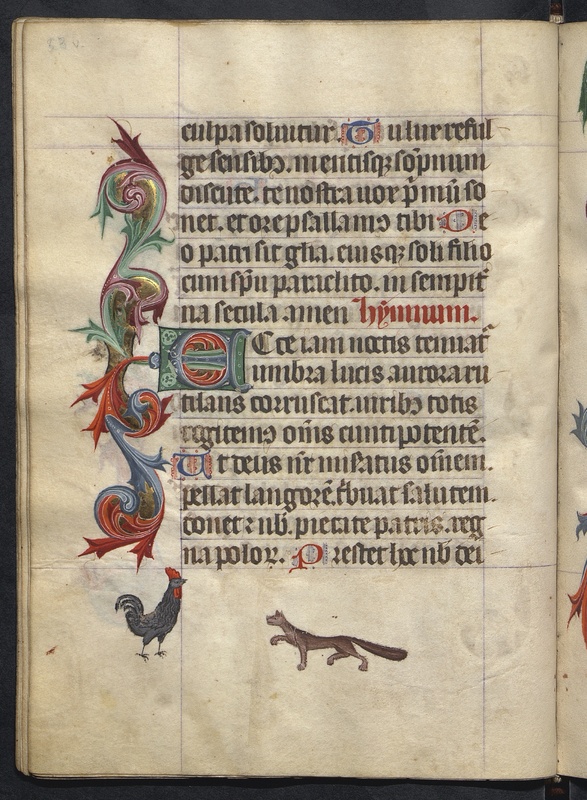 58 v.
culpa soluitur. Tu lux reful
ge sensibꝫ. mentisqꝫ sõpnum
discute. te nostra uox p̄mũ so
net. et ore psallamꝰ tibi. De
o patri sit gl̃ia. eiusqꝫ soli filio
cum sp̄u paraclito. in sempit̃
na secula amen hymnum.
Ecce iam noctis tenuat̃
umbra lucis aurora ru
tilans corruscat. uiribꝫ totis
rogitemꝰ om̄s cuntipotentẽ.
Ut deus nr̃ misatus om̃em.
pellat langorẽ. tͥbuat salutem.
donet ⁊ nb̃. pietate patris. reg
na poloꝝ. Prestet hoc nb̃ dei